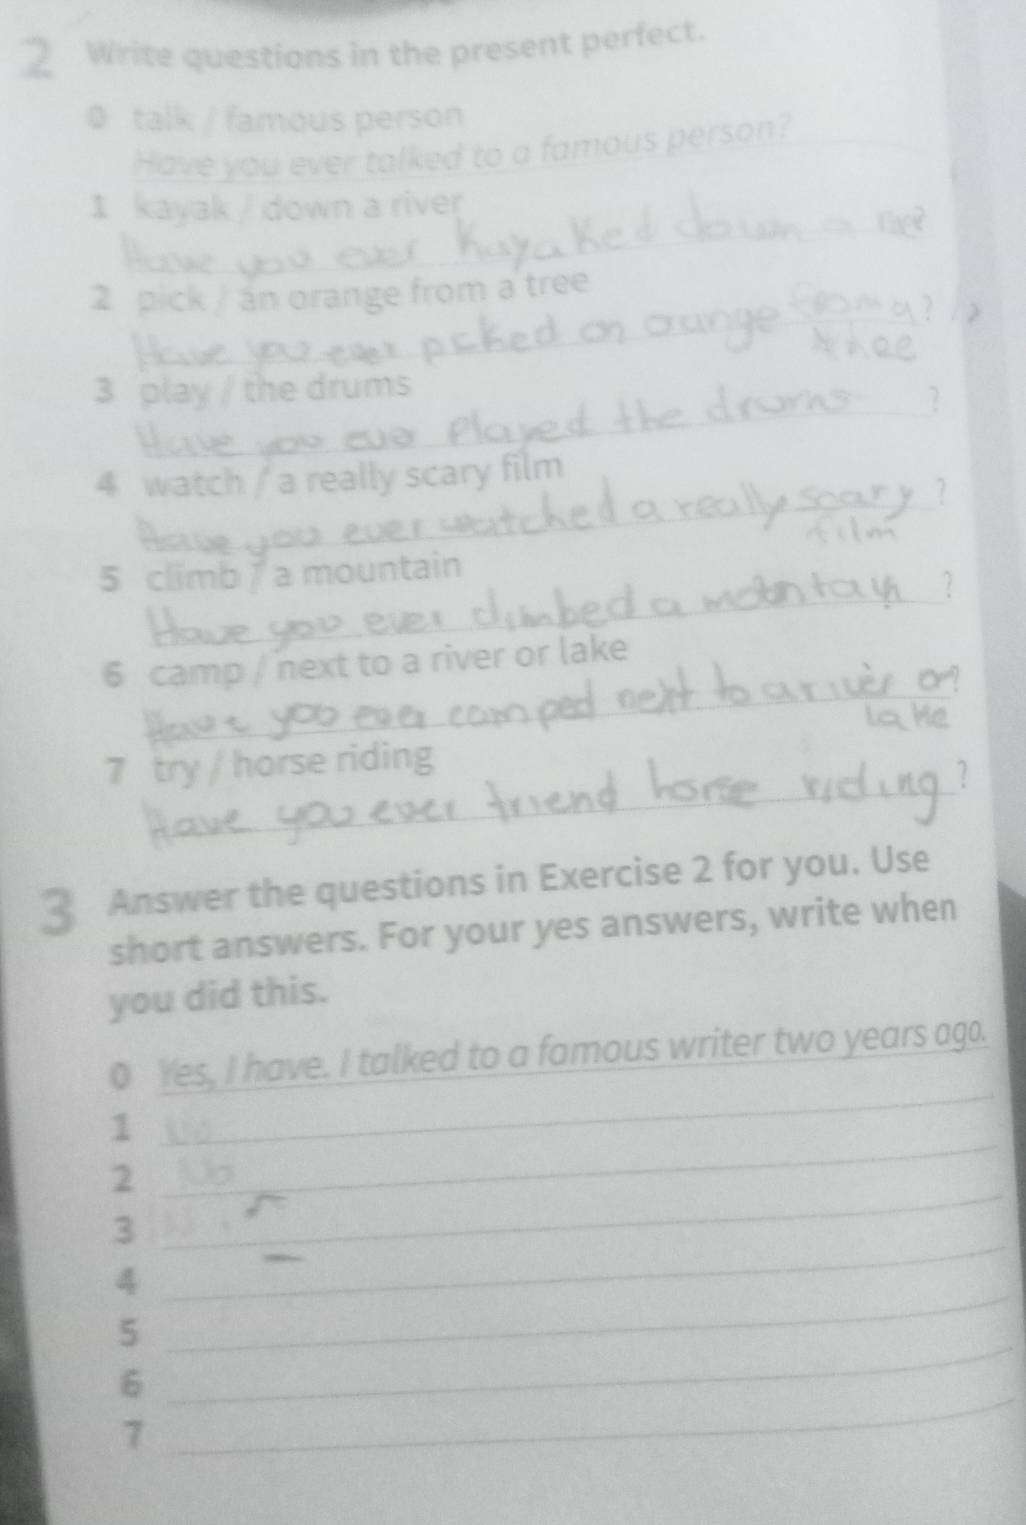 2 Write questions in the present perfect.
0 talk / famous person
Have you ever talked to a famous person?
1 kayak / down a river
Have you ever kayaked down a
2 pick / an orange from a tree
Have you ever picked an orange from a?
3 play / the drums
Have you ever played the drums ?
4 watch / a really scary film
Have you ever watched a really scary ?
film
5 climb / a mountain
Have you ever climbed a ?
6 camp / next to a river or lake
Have you ever camped next to a river or?
lake
7 try / horse riding
Have you ever friend horse riding ?
3 Answer the questions in Exercise 2 for you. Use
short answers. For your yes answers, write when
you did this.
0 Yes, I have. I talked to a famous writer two years ago.
1
2
3
4
5
6
7